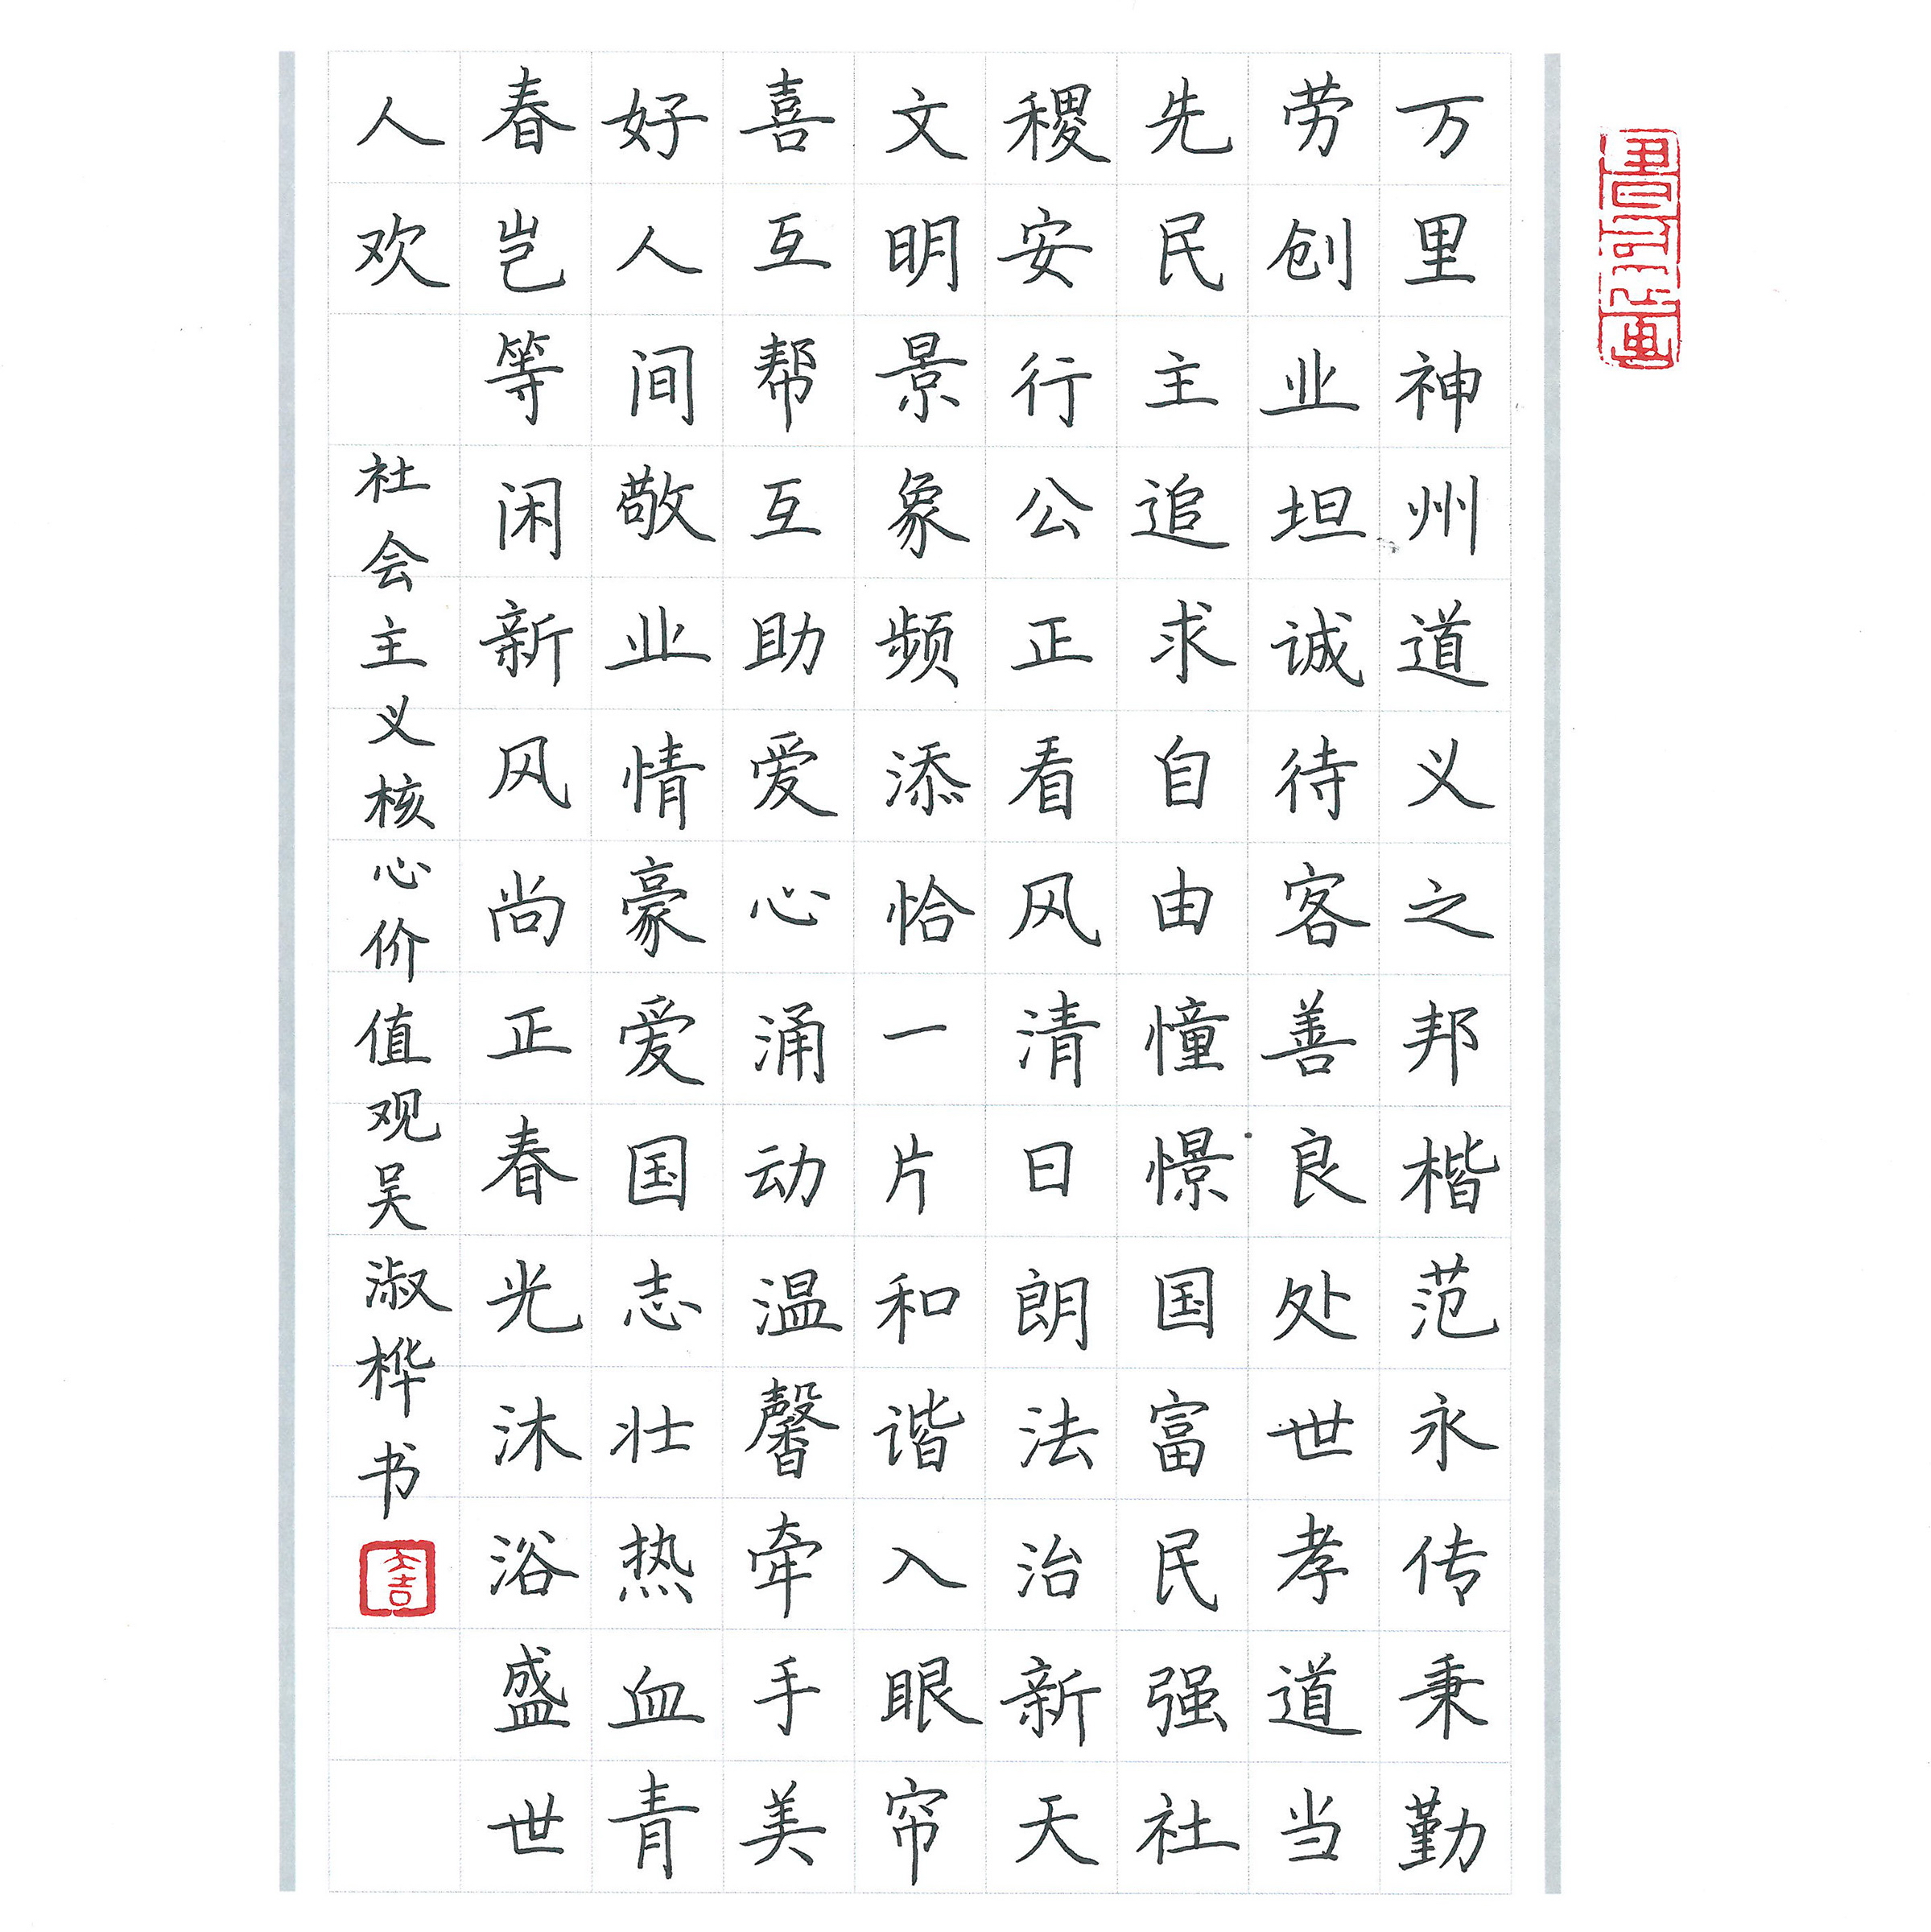 万里神州道义之邦楷范永传秉勤
劳创业坦诚待客善良处世孝道当
先民主追求自由憧憬国富民强社
稷安行公正看风清日朗法治新天
文明景象频添恰一片和谐入眼帘
喜互帮互助爱心涌动温馨牵手美
好人间敬业情豪爱国志壮热血青
春岂等闲新风尚正春光沐浴盛世
人欢
社会主义核心价值观吴淑桦书
大吉